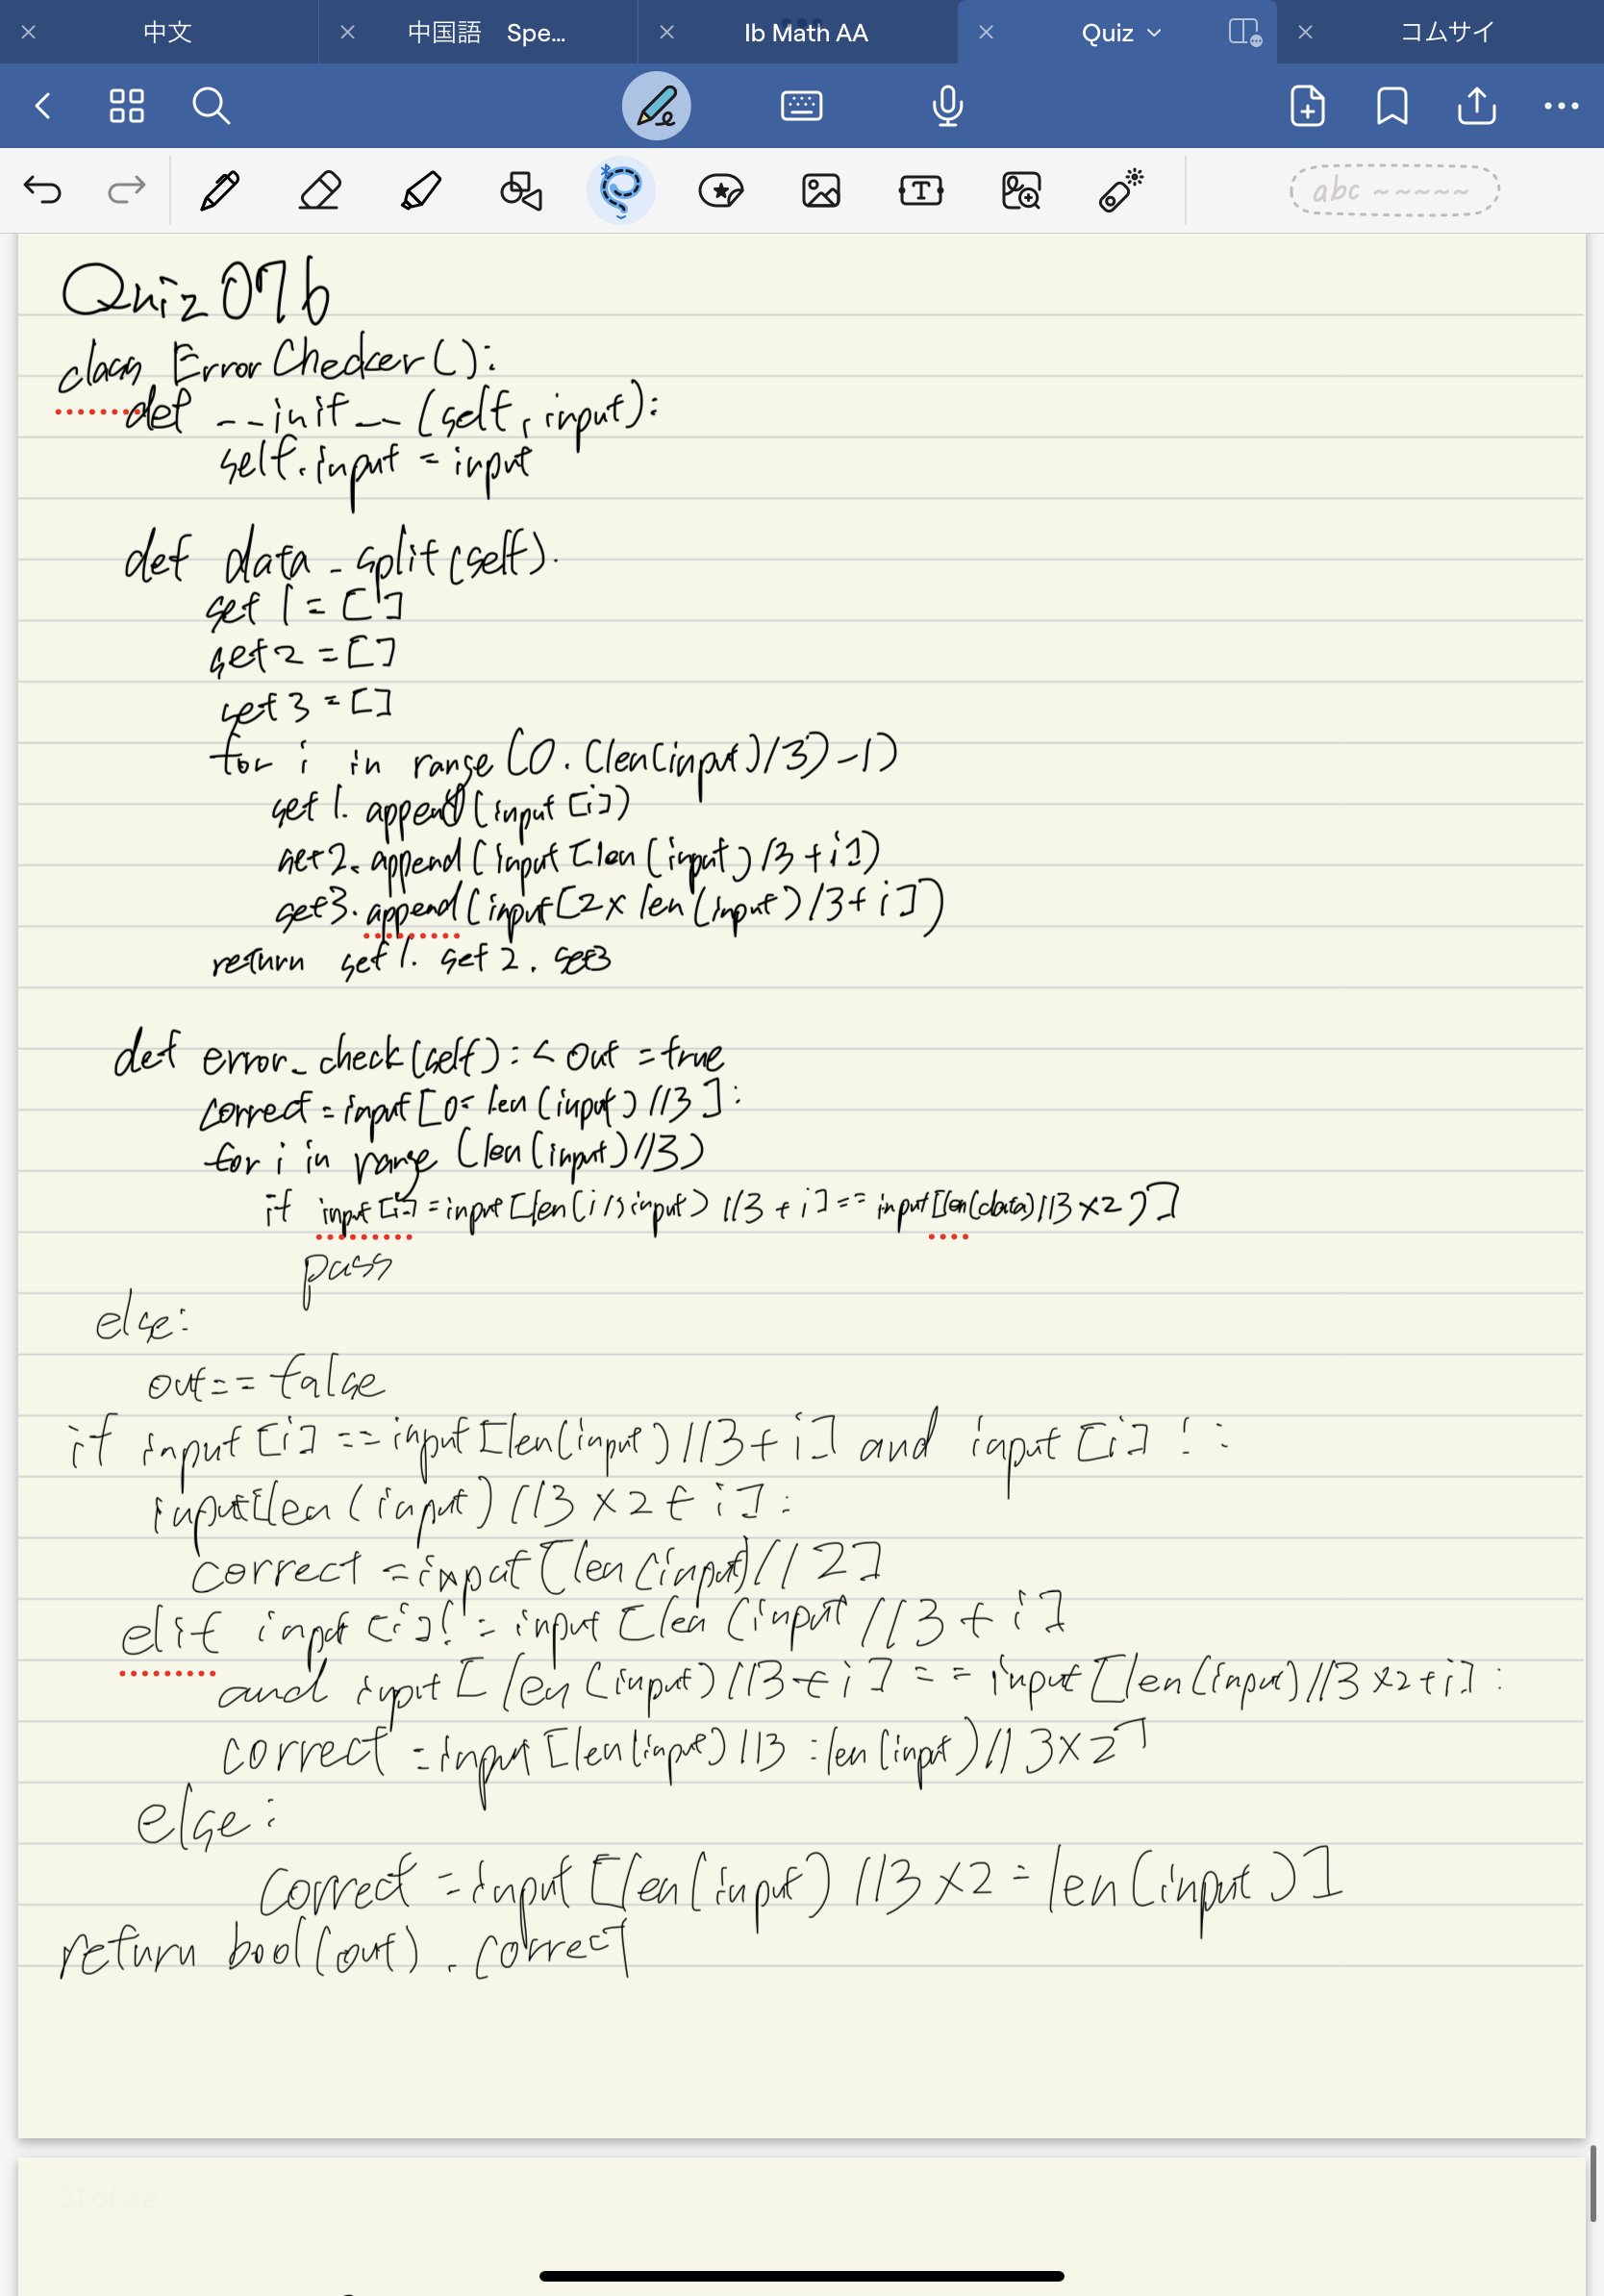 中文
中国語 Spe...
Ib Math AA
Quiz
コムサイ
abc ~~~~~
Quiz 076
class Error Checker():
def __init__(self, input):
self.input = input
def data_split(self).
set1 = []
set2 = []
set3 = []
for i in range (0. (len(input)/3)-1)
set1. append(input[i])
set2. append(input[len(input)/3+i])
set3. append(input[2x len(input)/3+i])
return set1. set2. set3
def error_check(self): < out = true
correct = input[0= len(input)//3]:
for i in range (len(input)//3)
if input[i] = input[len( input) //3+i] == input[len(data)//3x2 )]
pass
else:
out== false
if input[i] == input[len(input)//3+i] and input[i] ! :
input[len(input)//3x2+i]:
correct = input[len(input)//2]
elif input[i]! = input[len(input//3+i]
and input[len(input)//3+i] == input[len(input)//3x2+i]:
correct = input[len(input)//3 :len(input)//3x2]
else:
correct = input[len(input)//3x2=len(input)]
return bool(out). correct
31 of 32